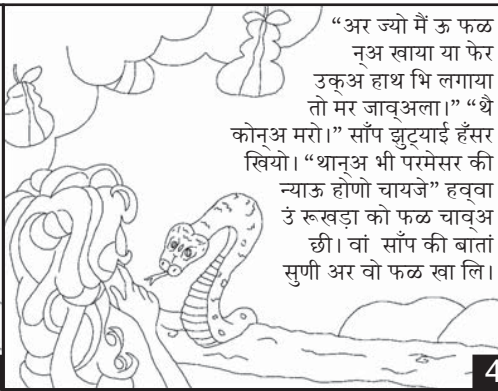 “अर ज्यो मैं ऊ फळ
न्अ खाया या फेर
उक्अ हाथ भि लगाया
तो मर जाव्अला।” “थै
कोन्अ मरो।” साँप झुट्याई हँसर
खियो। “थान्अ भी परमेसर की
न्याऊ होणो चायजे” हव्वा
उं रूखड़ा को फळ चाव्अ
छी। वां साँप की बातां
सुणी अर वो फळ खा लि।
4